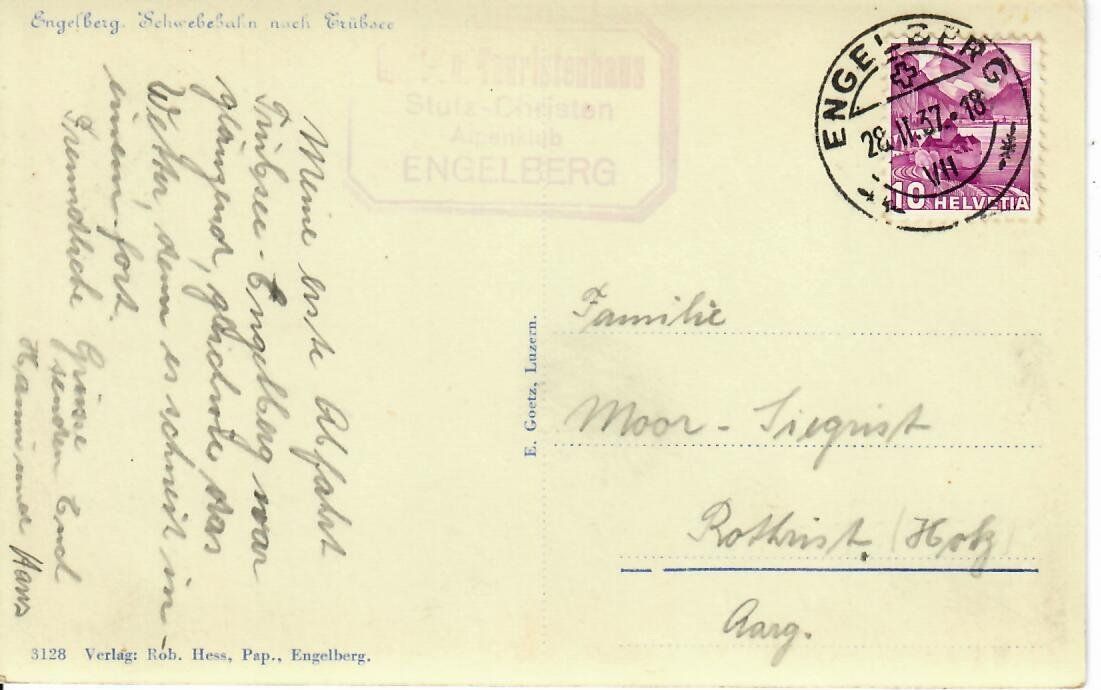 Engelberg. Schwebebahn nach Trübsee
Touristenhaus
Stutz-Christen
Alpenklub
ENGELBERG
ENGELBERG
28. II. 37. - 18
VII
10 HELVETIA
Meine erste Abfahrt
Trübsee - Engelberg war
glänzend, trotz das
Wetter, denn es schneit in-
einem-fort.
Freundliche Grüsse
senden Euch
Hanni und Hans
E. Goetz, Luzern.
Familie
Moor - Siegrist
Rothrist (Holz)
Aarg.
3128 Verlag: Rob. Hess, Pap., Engelberg.